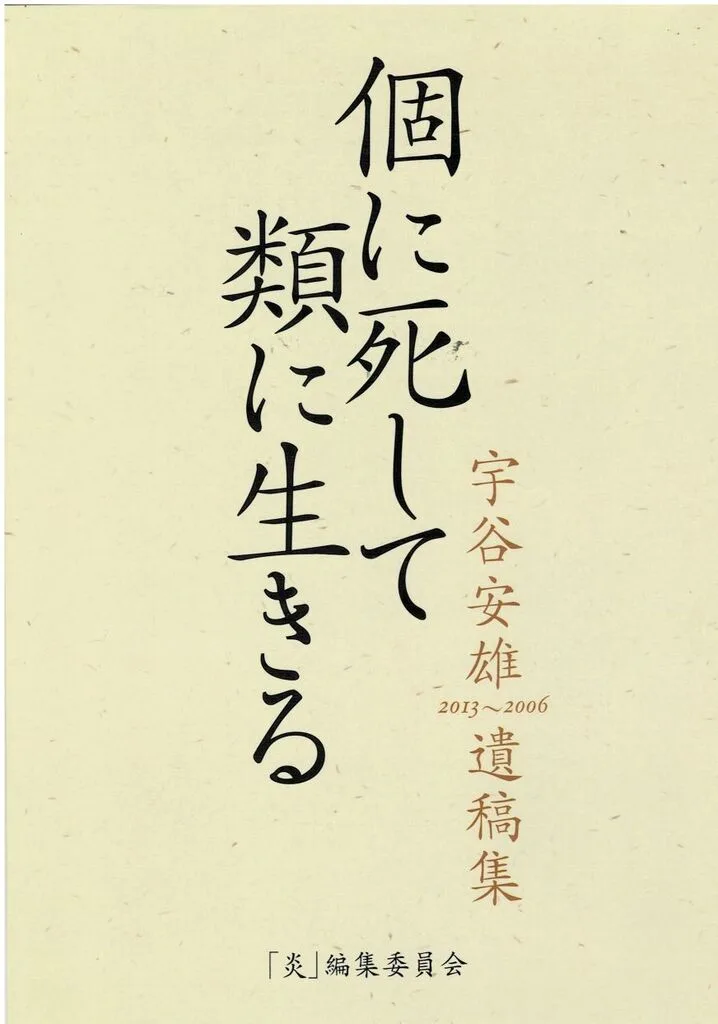 個に死して
類に生きる
宇谷安雄
2013～2006
遺稿集
「炎」編集委員会